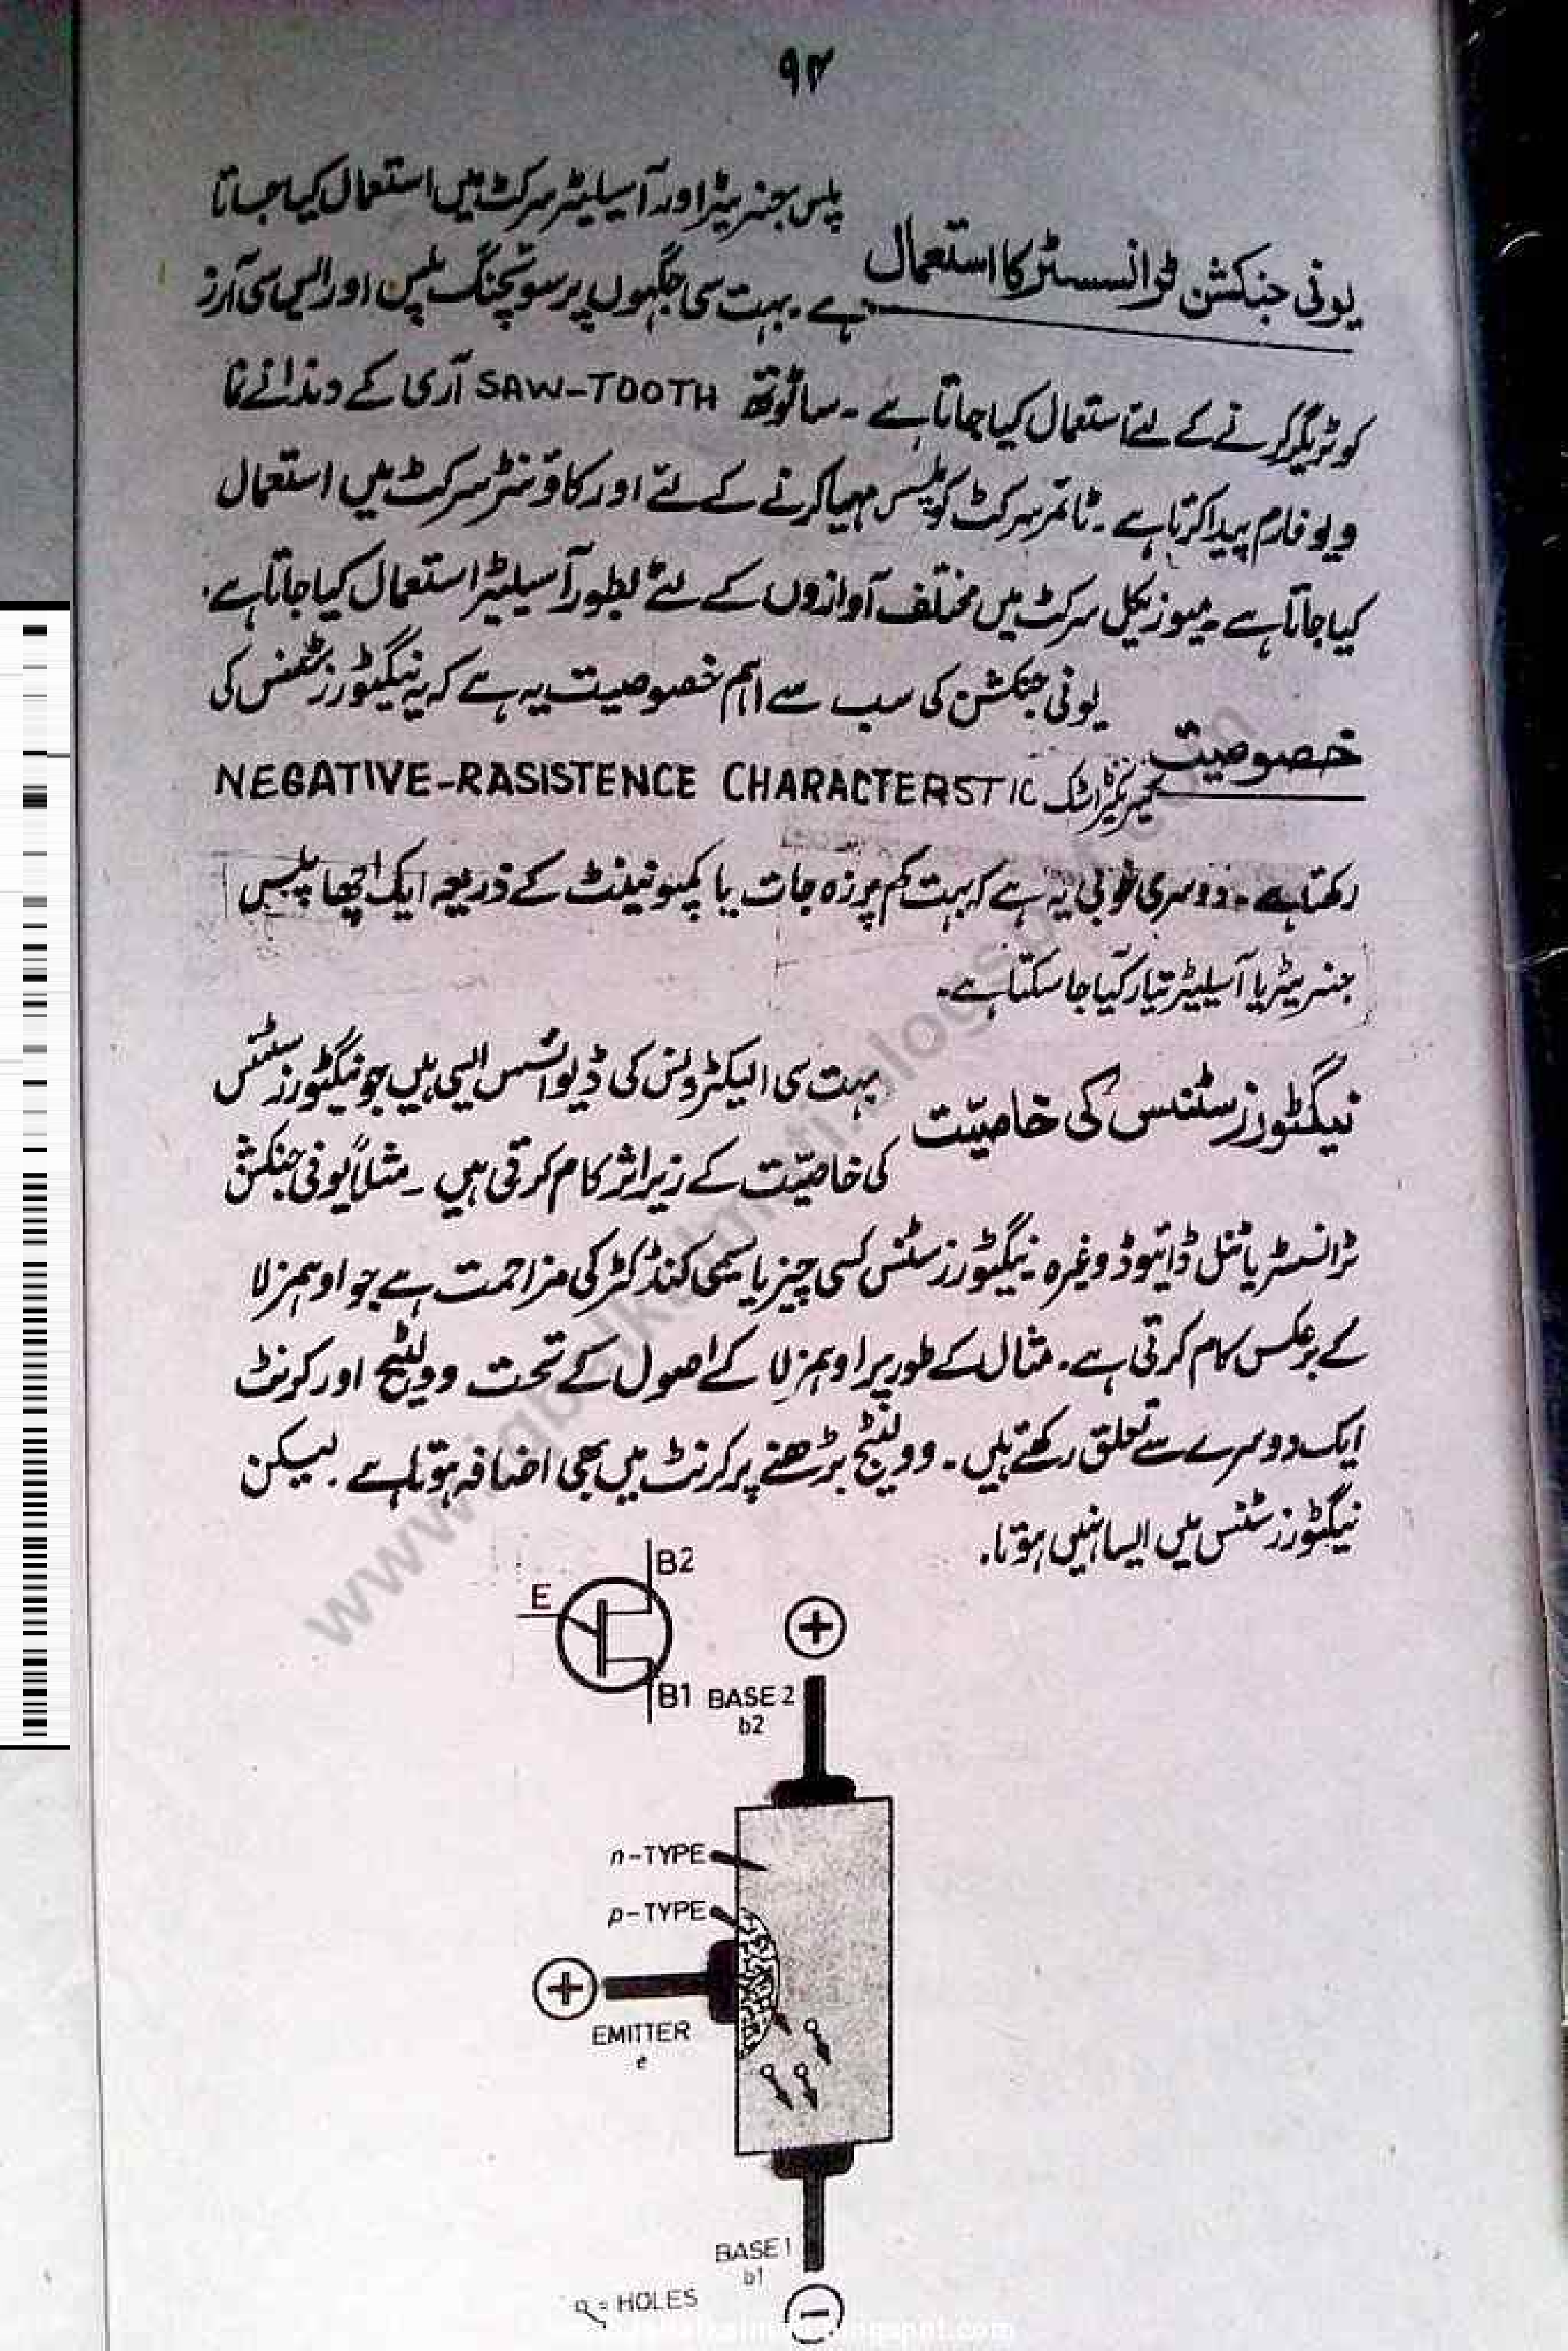 ۹۲
یونی جنکشن ٹرانسسٹر کا استعمال
پلس جنریٹر اور آسیلیٹر سرکٹ میں استعمال کیا جاتا
ہے ۔ بہت سی جگہوں پر سوئچنگ پلس اور ایس سی آرز
کو ٹریگر کرنے کے لئے استعمال کیا جاتا ہے ۔ ساٹوتھ SAW-TOOTH آری کے دندانے نما
ویو فارم پیدا کرتا ہے ۔ ٹائمر سرکٹ کو پلس مہیا کرنے کے لئے اور کاؤنٹر سرکٹ میں استعمال
کیا جاتا ہے ۔ میوزیکل سرکٹ میں مختلف آوازوں کے لئے بطور آسیلیٹر استعمال کیا جاتا ہے ۔
خصوصیت
یونی جنکشن کی سب سے اہم خصوصیت یہ ہے کہ یہ نیگیٹو رزسٹنس کی
کیریکٹراسٹک NEGATIVE-RASISTENCE CHARACTERSTIC
رکھتا ہے ۔ دوسری خوبی یہ ہے کہ بہت کم پرزہ جات یا کمپونینٹ کے ذریعہ ایک اچھا پلس
جنریٹر یا آسیلیٹر تیار کیا جا سکتا ہے ۔
نیگٹو رزسٹنس کی خاصیّت
بہت سی الیکٹرونس کی ڈیوائسس ایسی ہیں جو نیگٹو رزسٹنس
کی خاصیّت کے زیر اثر کام کرتی ہیں ۔ مثلاً یونی جنکشن
ٹرانسسٹر یا ٹنل ڈائیوڈ وغیرہ ۔ نیگٹو رزسٹنس کسی چیز یا سیمی کنڈکٹر کی مزاحمت ہے جو اوہمز لا
کے برعکس کام کرتی ہے ۔ مثال کے طور پر اوہمز لا کے اصول کے تحت وولٹیج اور کرنٹ
ایک دوسرے سے تعلق رکھتے ہیں ۔ وولٹیج بڑھنے پر کرنٹ میں بھی اضافہ ہوتا ہے ۔ لیکن
نیگٹو رزسٹنس میں ایسا نہیں ہوتا ۔
B2
E
B1
+
BASE 2
b2
n-TYPE
p-TYPE
+
EMITTER
e
BASE 1
b1
= HOLES
−